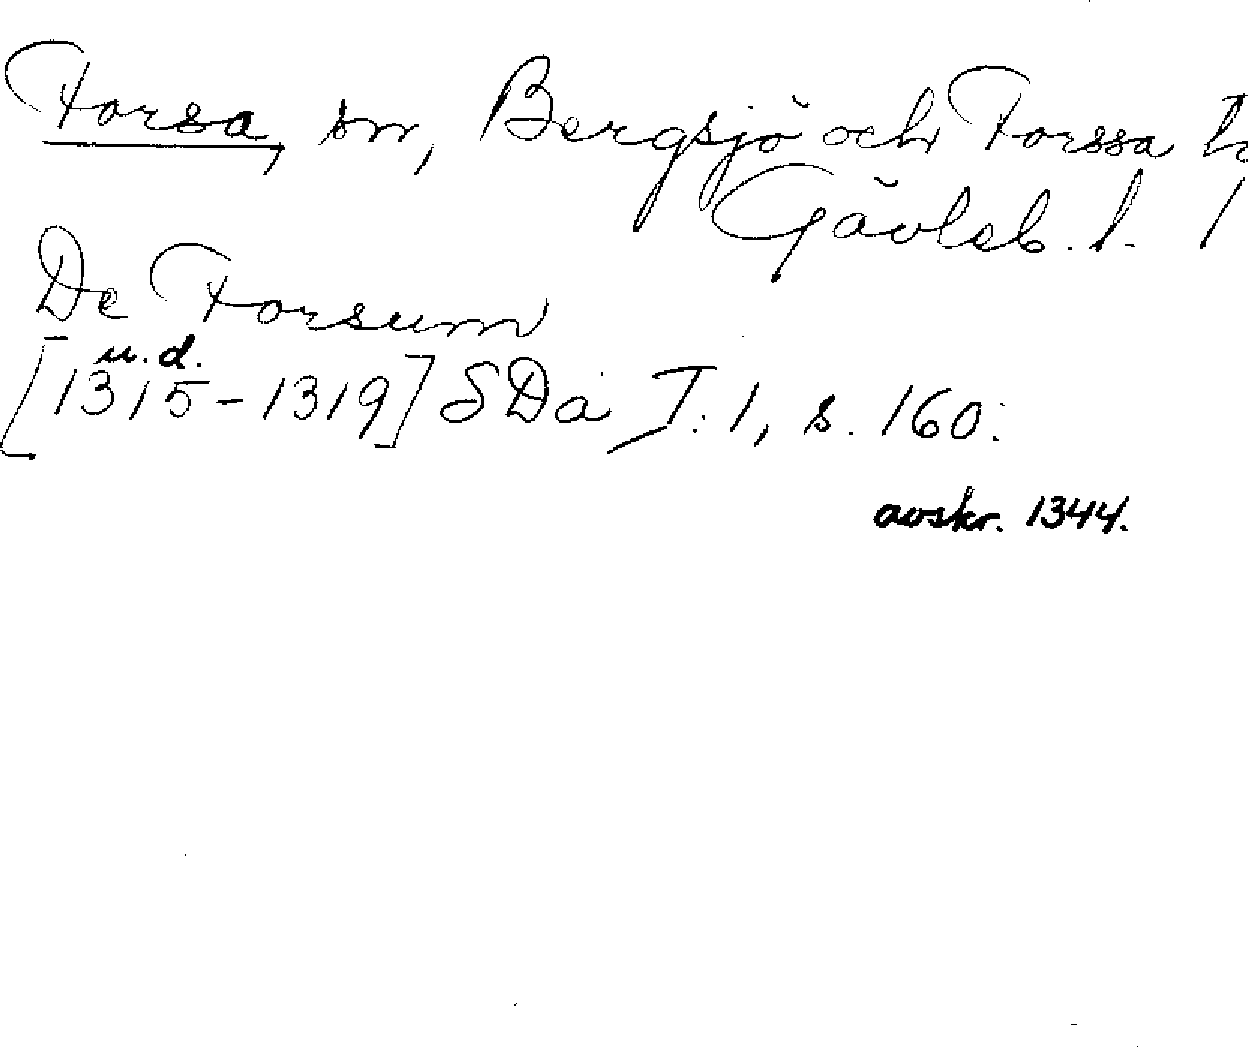 Forsa, sn, Bergsjö och Forssa
Gävleb. l.
De Forsum
u. d.
[1315-1319] SDa I. 1, s. 160:
avskr. 1344.